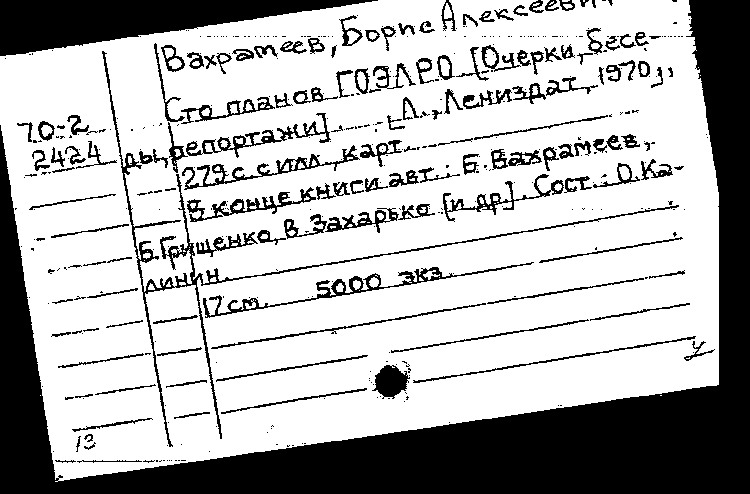 Вахрамеев, Борис Алексеевич
Сто планов ГОЭЛРО [Очерки, бесе-
ды, репортажи]. [Л., Лениздат, 1970],
70-2
2424
279 с. с илл., карт.
В конце книги авт.: Б. Вахрамеев,
Б. Грищенко, В. Захарько [и др.]. Сост.: О. Ка-
линин.
17 см. 5000 экз.
У
13